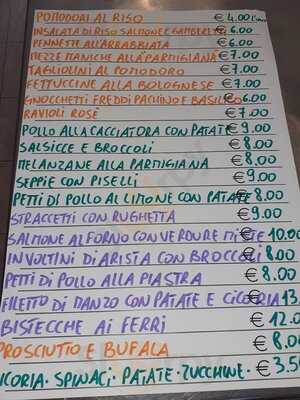 POMODORI AL RISO € 4.00 L'uno
INSALATA DI RISO SALMONE E GAMBERETTI € 6.00
PENNETTE ALL'ARRABBIATA € 6.00
MEZZE MANICHE ALLA PARMIGIANA € 7.00
TAGLIOLINI AL POMODORO € 7.00
FETTUCCINE ALLA BOLOGNESE € 7.00
GNOCCHETTI FREDDI PACHINO E BASILICO € 6.00
RAVIOLI ROSÈ € 7.00
POLLO ALLA CACCIATORA CON PATATE € 9.00
SALSICCE E BROCCOLI € 8.00
MELANZANE ALLA PARMIGIANA € 8.00
SEPPIE CON PISELLI € 9.00
PETTI DI POLLO AL LIMONE CON PATATE € 8.00
STRACCETTI CON RUGHETTA € 9.00
SALMONE AL FORNO CON VERDURE MISTE € 10.00
INVOLTINI DI ARISTA CON BROCCOLI € 8.00
PETTI DI POLLO ALLA PIASTRA € 8.00
FILETTO DI MANZO CON PATATE E CICORIA 13.
BISTECCHE AI FERRI € 12.0
PROSCIUTTO E BUFALA € 8.0
CICORIA - SPINACI - PATATE - ZUCCHINE - € 3.50